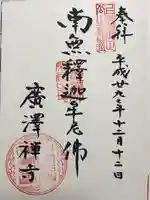 奉拝
平成廿九年十二月十二日
南無釋迦牟尼佛
廣澤禅寺